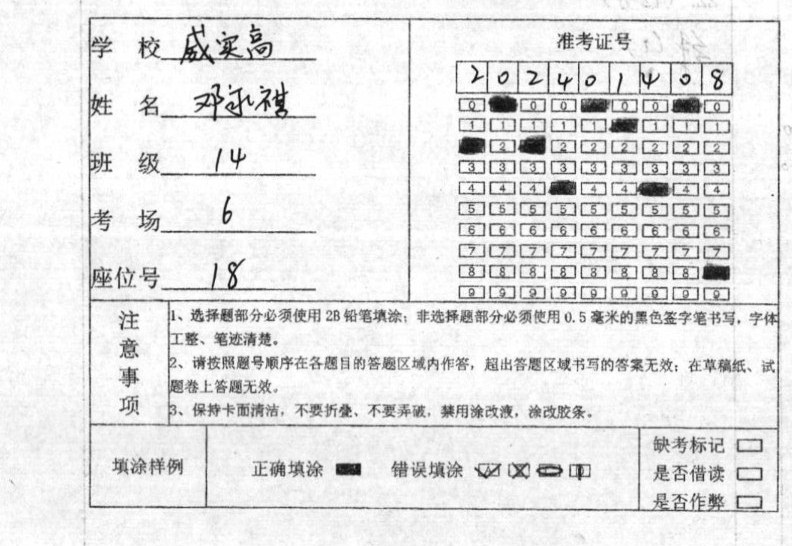 学 校 威实高
姓 名 邓永祺
班 级 14
考 场 6
座位号 18
准考证号
2 0 2 4 0 1 4 0 8
0 0 0 0 0 0
1 1 1 1 1 1 1 1
2 2 2 2 2 2 2
3 3 3 3 3 3 3 3 3
4 4 4 4 4 4 4
5 5 5 5 5 5 5 5 5
6 6 6 6 6 6 6 6 6
7 7 7 7 7 7 7 7 7
8 8 8 8 8 8 8 8
9 9 9 9 9 9 9 9 9
注意事项
1、选择题部分必须使用 2B 铅笔填涂；非选择题部分必须使用 0.5 毫米的黑色签字笔书写，字体
工整、笔迹清楚。
2、请按照题号顺序在各题目的答题区域内作答，超出答题区域书写的答案无效；在草稿纸、试
题卷上答题无效。
3、保持卡面清洁，不要折叠、不要弄破，禁用涂改液，涂改胶条。
填涂样例 正确填涂 错误填涂
缺考标记
是否借读
是否作弊